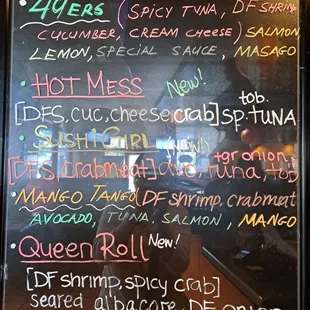 • 49ERS (SPICY TUNA, DF SHRIM
CUCUMBER, CREAM CHEESE) SALMON
LEMON, SPECIAL SAUCE, MASAGO
• HOT MESS New!
tob.
[DFS, CUC, CHEESE, CRAB] SP. TUNA
• SUSHI GIRL NEW!
tgr onion.
[DFS, CRABMEAT] avo, tuna, tob
• MANGO TANGO (DF shrimp, crabmeat
AVOCADO, TUNA, SALMON, MANGO
• Queen Roll New!
[DF shrimp, spicy crab]
seared albacore, DF onion